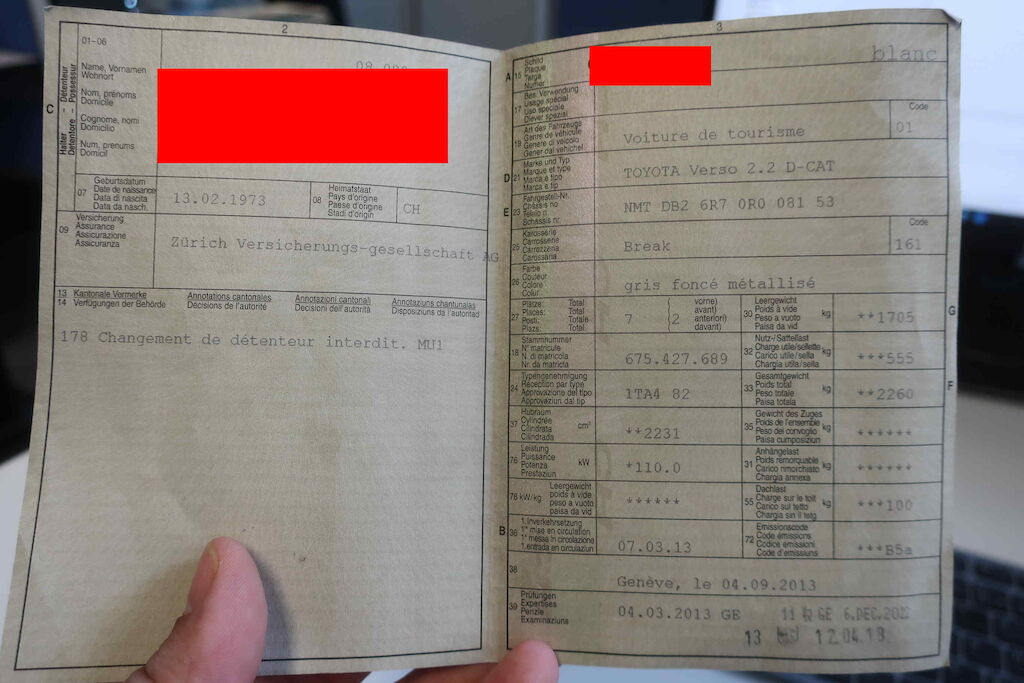 2
C
Halter - Détenteur
Détentore - Possessur
01-06
Name, Vornamen
Wohnort
Nom, prénoms
Domicile
Cognome, nomi
Domicilio
Num, prenums
Domicil
07
Geburtsdatum
Date de naissance
Data di nascita
Data da nasch.
13.02.1973
08
Heimatstaat
Pays d'origine
Paese d'origine
Stadi d'origin
CH
09
Versicherung
Assurance
Assicurazione
Assicuranza
Zürich Versicherungs-gesellschaft AG
13 Kantonale Vermerke
14 Verfügungen der Behörde
Annotations cantonales
Décisions de l'autorité
Annotazioni cantonali
Decisioni dell'autorità
Annotaziuns chantunalas
Disposiziuns da l'autoritad
178 Changement de détenteur interdit. MU1
3
A 15
Schild
Plaque
Targa
Numer
blanc
17
Bes. Verwendung
Usage spécial
Uso speciale
Diever spezial
19
Art des Fahrzeugs
Genre de véhicule
Genere di veicolo
Gener dal vehichel
Voiture de tourisme
Code
01
D 21
Marke und Typ
Marque et type
Marca e tipo
Marca e tip
TOYOTA Verso 2.2 D-CAT
E 23
Fahrgestell-Nr.
Châssis no
Telaio n.
Schassis nr.
NMT DB2 6R7 0R0 081 53
25
Karosserie
Carrosserie
Carrozzeria
Carossaria
Break
Code
161
26
Farbe
Couleur
Colore
Colur
gris foncé métallisé
27
Plätze: Total
Places: Total
Posti: Totale
Plazs: Total
7
( vorne)
( avant)
(2 anteriori)
( davant)
30
Leergewicht
Poids à vide
Peso a vuoto
Paisa da vid
kg
**1705
G
18
Stammnummer
N° matricule
N. di matricola
Nr. da matricla
675.427.689
32
Nutz-/Sattellast
Charge utile/sellette
Carico utile/sella
Chargia utila/sella
kg
***555
24
Typengenehmigung
Réception par type
Approvazione del tipo
Approvaziun dal tip
1TA4 82
33
Gesamtgewicht
Poids total
Peso totale
Paisa totala
kg
**2260
F
37
Hubraum
Cylindrée
Cilindrata
Cilindrada
cm³
**2231
35
Gewicht des Zuges
Poids de l'ensemble
Peso del convoglio
Paisa cumposiziun
kg
******
76
Leistung
Puissance
Potenza
Prestaziun
kW
*110.0
31
Anhängelast
Poids remorquable
Carico rimorchiato
Chargia annexa
kg
******
78 kW/kg
Leergewicht
poids à vide
peso a vuoto
paisa da vid
******
55
Dachlast
Charge sur le toit
Carico sul tetto
Chargia sin il tetg
kg
***100
B 36
1. Inverkehrsetzung
1re mise en circulation
1a messa in circolazione
1. entrada en circulaziun
07.03.13
72
Emissionscode
Code émissions
Codice emissioni
Code d'emissiuns
***B5a
38
Genève, le 04.09.2013
39
Prüfungen
Expertises
Perizie
Examinaziuns
04.03.2013 GE
11 GE 6.DEC.2022
13 12.04.18